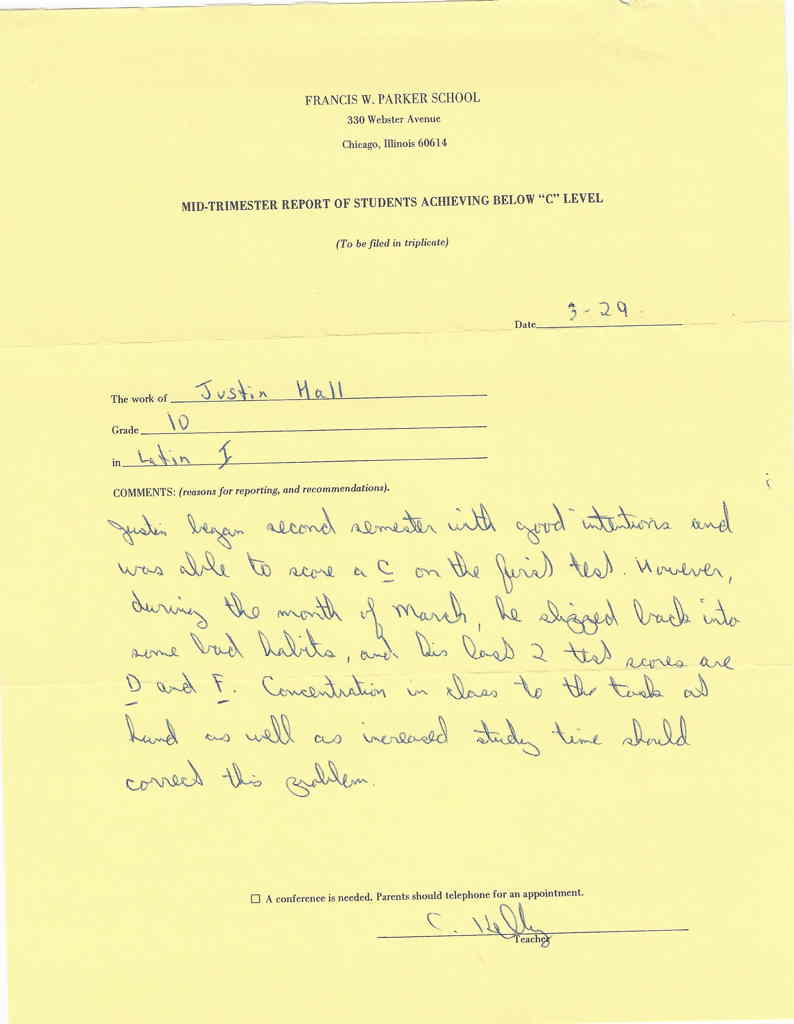 FRANCIS W. PARKER SCHOOL
330 Webster Avenue
Chicago, Illinois 60614
MID-TRIMESTER REPORT OF STUDENTS ACHIEVING BELOW "C" LEVEL
(To be filed in triplicate)
Date 3-29
The work of Justin Hall
Grade 10
in Latin I
COMMENTS: (reasons for reporting, and recommendations).
Justin began second semester with good intentions and
was able to score a C on the first test. However,
during the month of March, he slipped back into
some bad habits, and his last 2 test scores are
D and F. Concentration in class to the task at
hand as well as increased study time should
correct this problem.
☐ A conference is needed. Parents should telephone for an appointment.
C. Kelly
Teacher